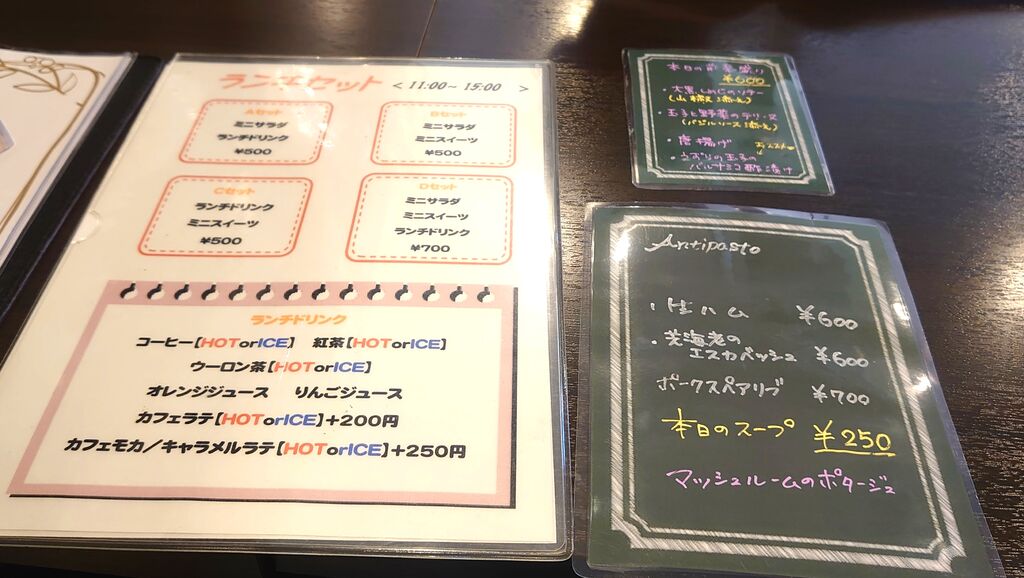 ランチセット < 11:00~ 15:00 >
Aセット
ミニサラダ
ランチドリンク
¥500
Bセット
ミニサラダ
ミニスイーツ
¥500
Cセット
ランチドリンク
ミニスイーツ
¥500
Dセット
ミニサラダ
ミニスイーツ
ランチドリンク
¥700
ランチドリンク
コーヒー【HOTorICE】 紅茶【HOTorICE】
ウーロン茶【HOTorICE】
オレンジジュース りんごジュース
カフェラテ【HOTorICE】+200円
カフェモカ/キャラメルラテ【HOTorICE】+250円
本日の前菜盛り
¥600
・大黒しめじのソテー
(山椒添え)
・玉子と野菜のテリーヌ
(バジルソース添え)
・唐揚げ
オススメ
・うずらの玉子の
バルサミコ酢漬け
Antipasto
・生ハム ¥600
・芝海老の
エスカベッシュ ¥600
ポークスペアリブ ¥700
本日のスープ ¥250
マッシュルームのポタージュ